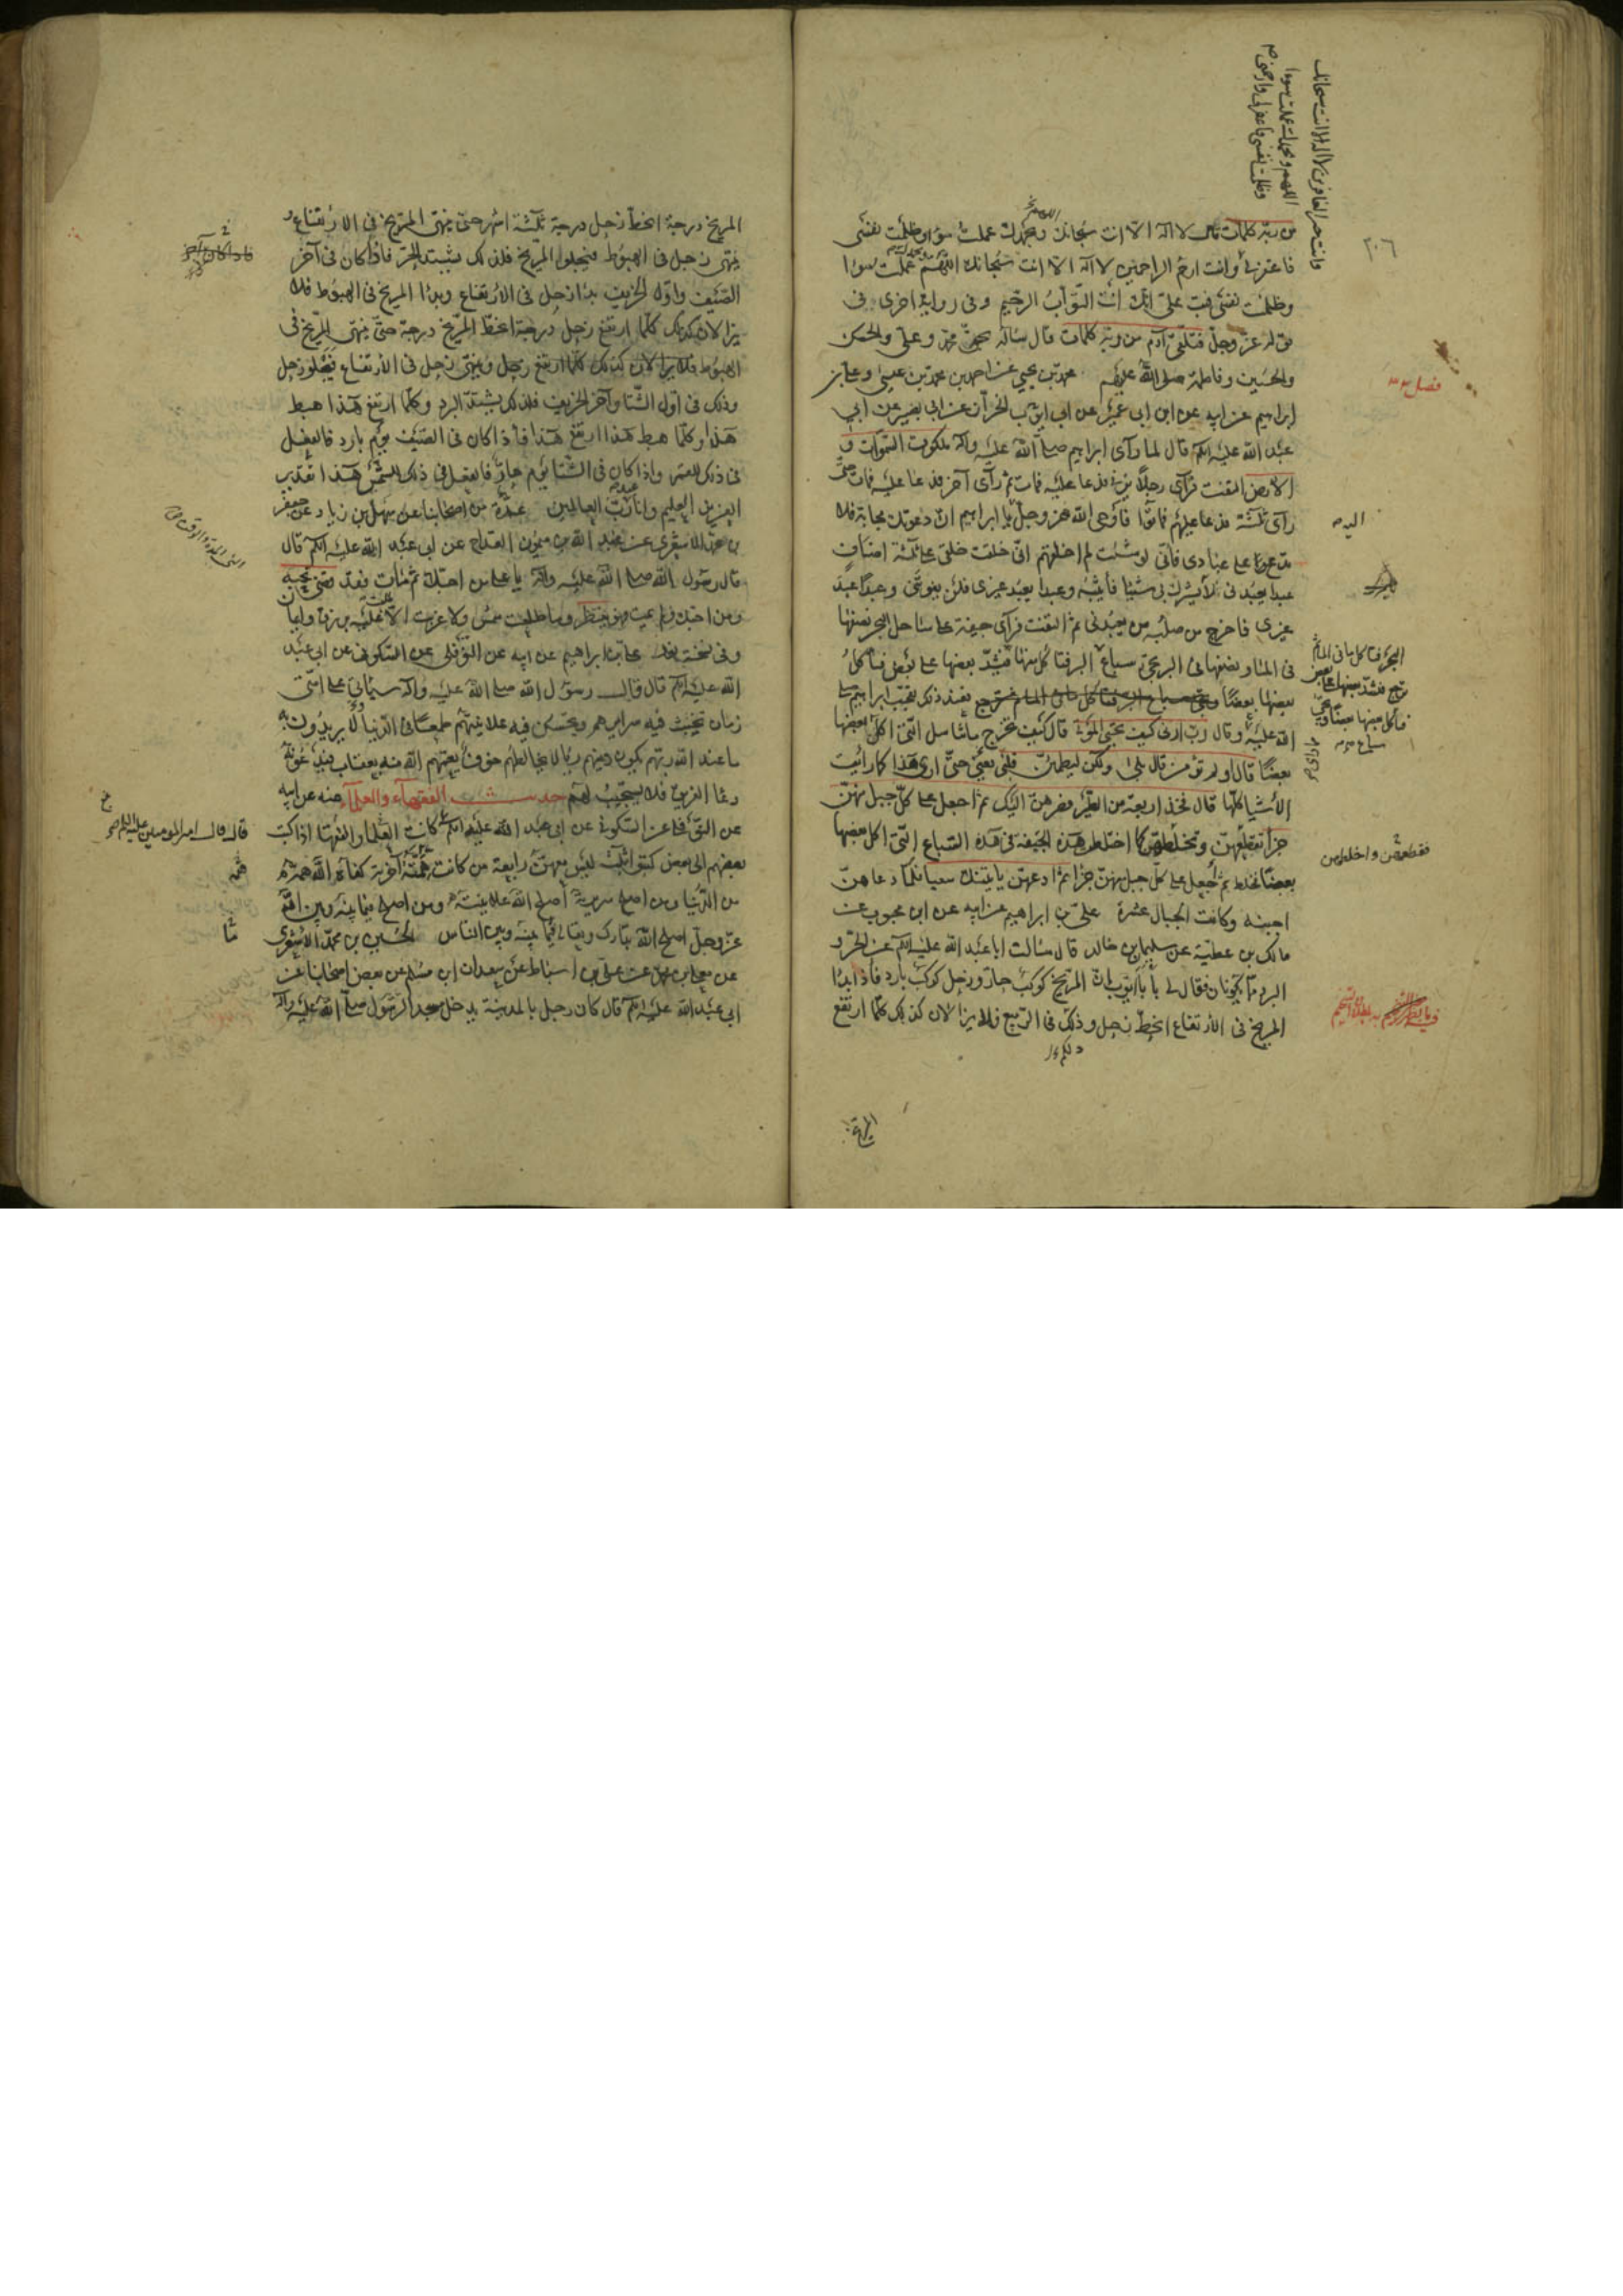 من ربه كلمات قال لا اله الا انت سبحانك اللهم وبحمدك عملت سوءا وظلمت نفسى
فاغفر لى وانت ارحم الراحمين لا اله الا انت سبحانك اللهم وبحمدك عملت سوءا
وظلمت نفسى فتب على انك انت التواب الرحيم وفى رواية اخرى فى
قوله عز وجل فتلقى آدم من ربه كلمات قال سأله بحق محمد وعلى والحسن
والحسين وفاطمة صلى الله عليهم محمد بن يحيى عن احمد بن محمد بن عيسى وعلى بن
ابراهيم عن ابيه عن ابن ابى عمير عن ابى ايوب الخزاز عن ابى بصير عن ابى
عبد الله عليه السلم قال لما رآى ابراهيم صلى الله عليه وآله ملكوت السموات و
الارض التفت فرآى رجلا يزنى فدعا عليه فمات ثم رآى آخر فدعا عليه فمات حتى
رآى ثلثة فدعا عليهم فماتوا فاوحى الله عز وجل يا ابراهيم ان دعوتك مجابة فلا
تدع بها على عبادى فانى لو شئت لم اخلقهم انى خلقت خلقى على ثلثة اصناف
عبدا يعبدنى لا يشرك بى شيئا فاثيبه وعبدا يعبد غيرى فلن يفوتنى وعبدا عبد
غيرى فاخرج من صلبه من يعبدنى ثم التفت فرآى جيفة على ساحل البحر نصفها
فى الماء ونصفها فى البر تجئ سباع البر فتاكل منها فيشد بعضها على بعض فياكل
بعضها بعضا فعند ذلك تعجب ابراهيم صلى
الله عليه وقال رب ارنى كيف تحيى الموتى قال كيف تخرج ما تناسل التى اكل بعضها
بعضا قال اولم تؤمن قال بلى ولكن ليطمئن قلبى يعنى حتى ارى هذا كما رأيت
الاشيا كلها قال فخذ اربعة من الطير فصرهن اليك ثم اجعل على كل جبل منهن
جزءا تقطعهن وتخلطهن كما اختلطت هذه الجيفة فى هذه السباع التى اكل بعضها
بعضا فخلط ثم اجعل على كل جبل منهن جزءا ثم ادعهن ياتينك سعيا فلما دعاهن
اجبنه وكانت الجبال عشرة على بن ابراهيم عن ابيه عن ابن محبوب عن
مالك بن عطية عن سليمان بن خالد قال سالت ابا عبد الله عليه السلم عن الحر و
البرد مما يكونان فقال لى يا با ايوب ان المريخ كوكب حار وزحل كوكب بارد فاذا بدا
المريخ فى الارتفاع انحط زحل وذلك فى الربيع فلا يزالان كذلك كلما ارتفع
٢٠٦
اليه
فقطعهن واخلطهن
المريخ درجة انحط زحل درجة ثلثة اشهر حتى ينتهى المريخ فى الارتفاع و
ينتهى زحل فى الهبوط فيجلو المريخ فلذلك يشتد الحر فاذا كان فى آخر
الصيف واول الخريف بدا زحل فى الارتفاع وبدا المريخ فى الهبوط فلا
يزالان كذلك كلما ارتفع زحل درجة انحط المريخ درجة حتى ينتهى المريخ فى
الهبوط وينتهى زحل فى الارتفاع فيجلو زحل
وذلك فى اول الشتا وآخر الخريف فلذلك يشتد البرد وكلما ارتفع هذا هبط
هذا وكلما هبط هذا ارتفع هذا فاذا كان فى الصيف يوم بارد فالفعل
فى ذلك للقمر واذا كان فى الشتا يوم حار فالفعل فى ذلك للشمس هذا تقدير
العزيز العليم وانا عبد رب العالمين عدة من اصحابنا عن سهل بن زياد عن جعفر
بن محمد الاشعرى عن عبد الله بن ميمون القداح عن ابى عبد الله عليه السلم قال
قال رسول الله صلى الله عليه وآله يا على من احبك ثم مات فقد قضى نحبه
ومن احبك ولم يمت فهو ينتظر وما طلعت شمس ولا غربت الا طلعت عليه برزق وايمان
وفى نسخة نور على بن ابراهيم عن ابيه عن النوفلى عن السكونى عن ابى عبد
الله عليه السلم قال قال رسول الله صلى الله عليه وآله سياتى على امتى
زمان تخبث فيه سرايرهم وتحسن فيه علانيتهم طمعا فى الدنيا ولا يريدون به
ما عند الله ربهم يكون دينهم رياء لا يخالطهم خوف يعمهم الله منه بعقاب فيدعونه
دعا الغريق فلا يستجيب لهم حديث الفقهاء والعلماء عنه عن ابيه
عن النوفلى عن السكونى عن ابى عبد الله عليه السلم كانت الفقها والعلما اذا كتب
بعضهم الى بعض كتبوا بثلث ليس معهن رابعة من كانت همته آخرته كفاه الله همه
من الدنيا ومن اصلح سريرته اصلح الله علانيته ومن اصلح فيما بينه وبين الله
عز وجل اصلح الله تبارك وتعالى فيما بينه وبين الناس الحسين بن محمد الاشعرى
عن معلى بن محمد عن على بن اسباط عن سعدان بن مسلم عن بعض اصحابنا عن
ابى عبد الله عليه السلم قال كان رجل بالمدينة يدخل مسجد الرسول صلى الله عليه وآله
قال قال امير المؤمنين عليه السلم